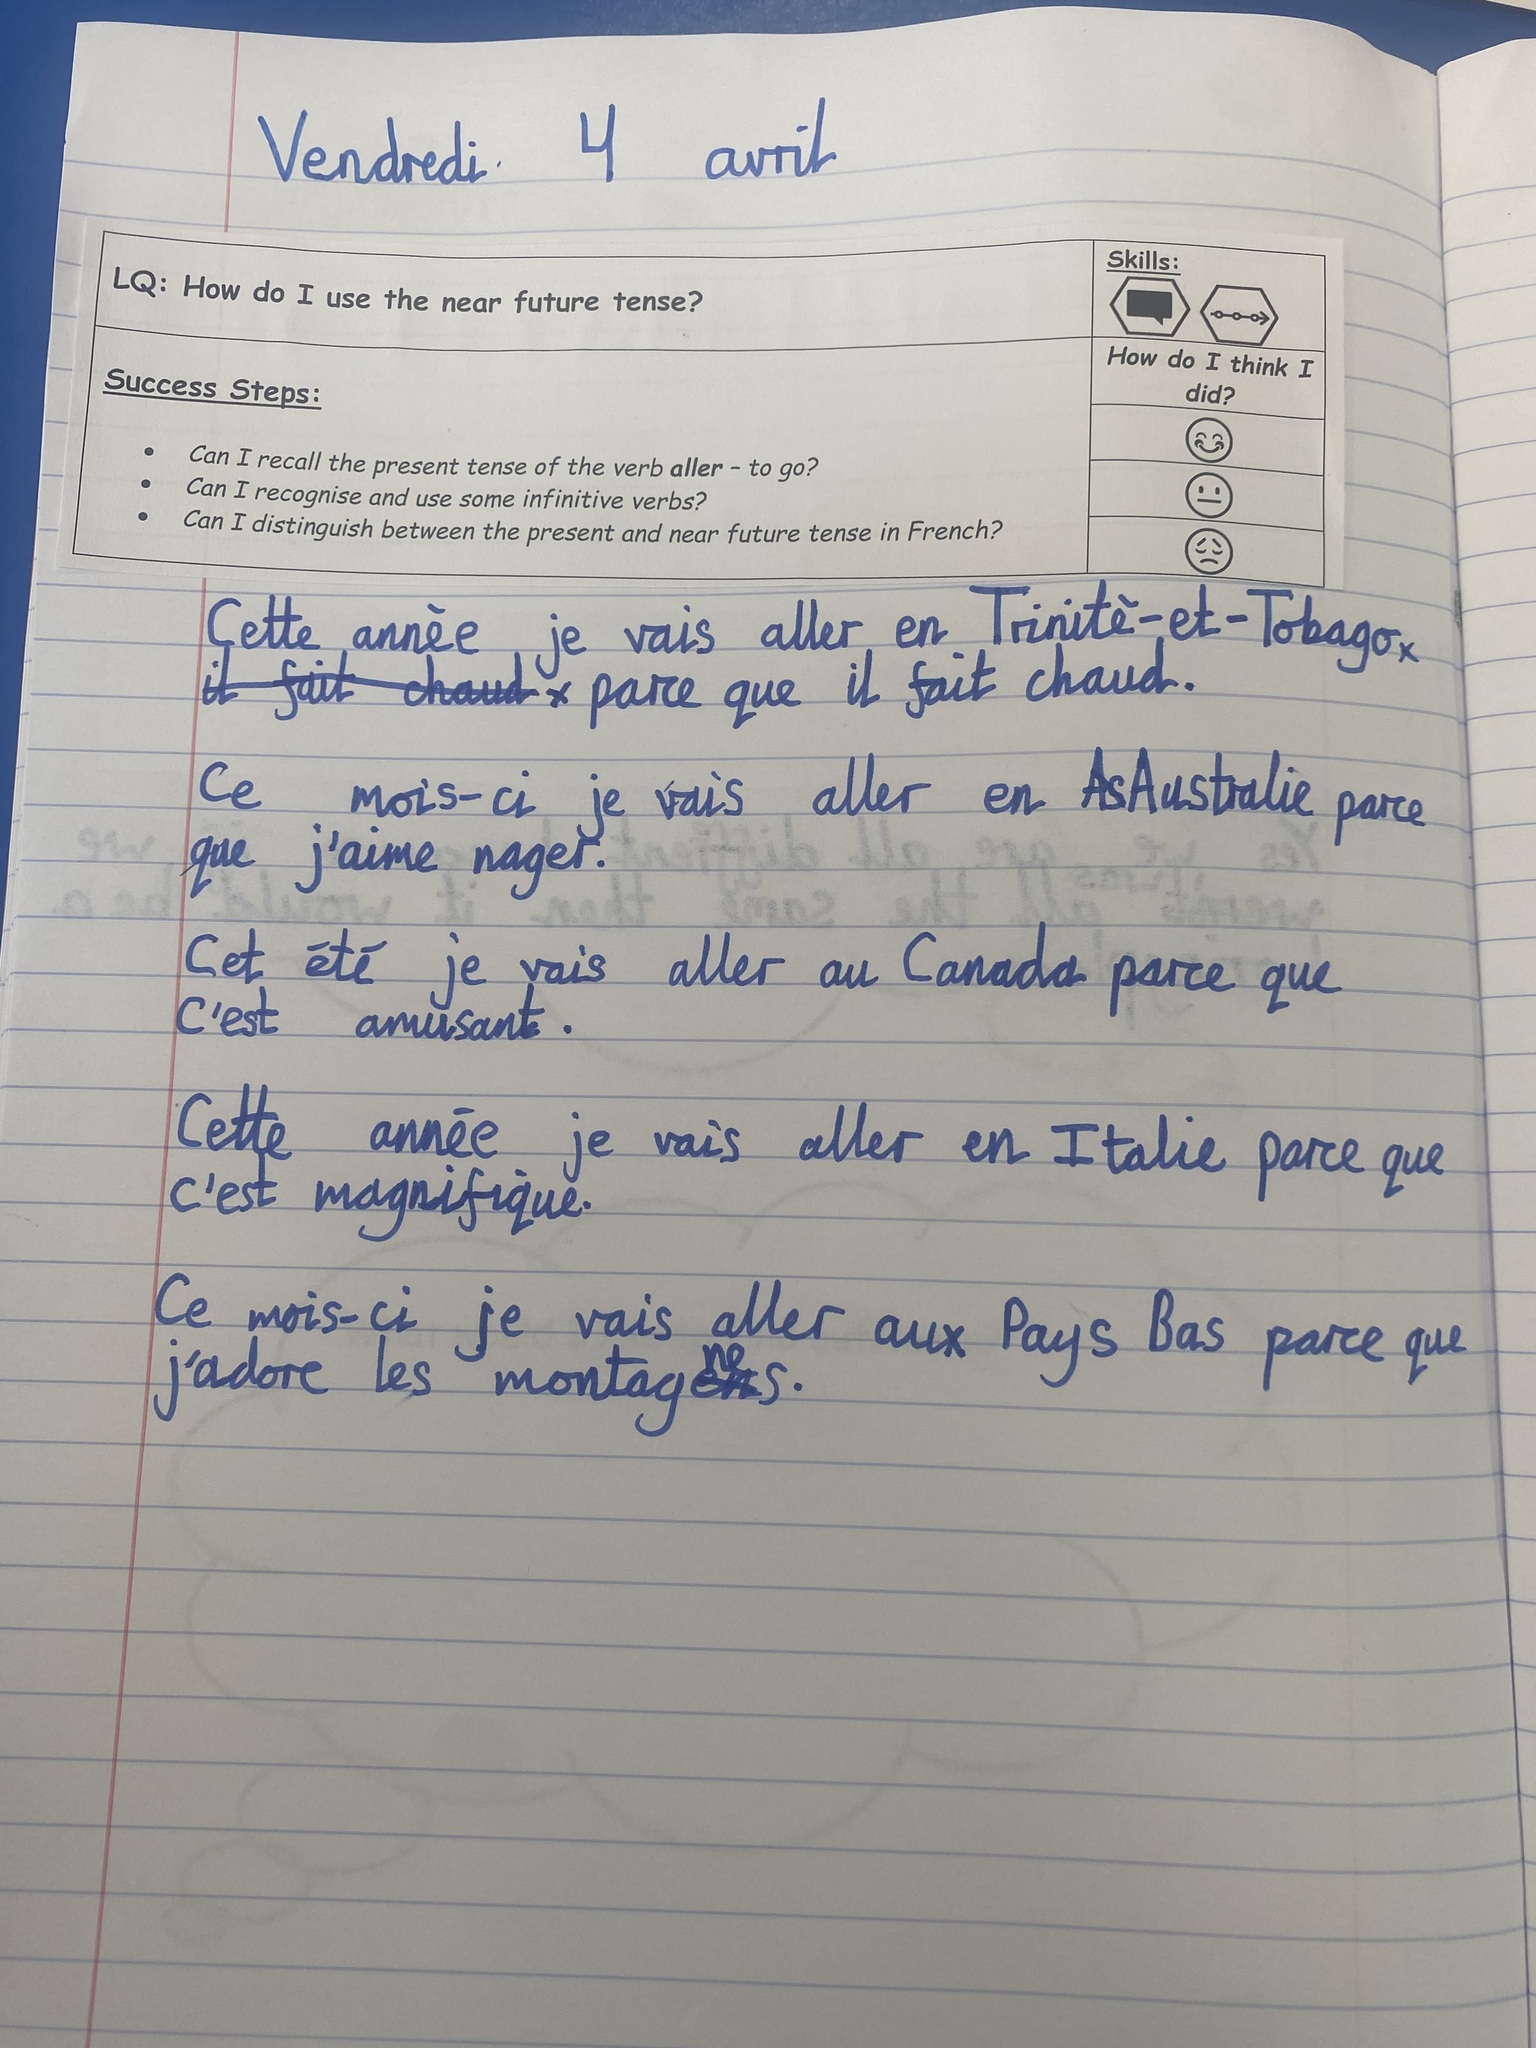 Vendredi 4 avril
LQ: How do I use the near future tense?
Skills:
Success Steps:
• Can I recall the present tense of the verb aller - to go?
• Can I recognise and use some infinitive verbs?
• Can I distinguish between the present and near future tense in French?
How do I think I
did?
Cette annèe je vais aller en Trinitè-et-Tobago x
il fait chaud x parce que il fait chaud.
Ce mois-ci je vais aller en AsAustralie parce
que j'aime nager.
Cet été je vais aller au Canada parce que
C'est amusant.
Cette année je vais aller en Italie parce que
c'est magnifique.
Ce mois-ci je vais aller aux Pays Bas parce que
j'adore les montagnes.